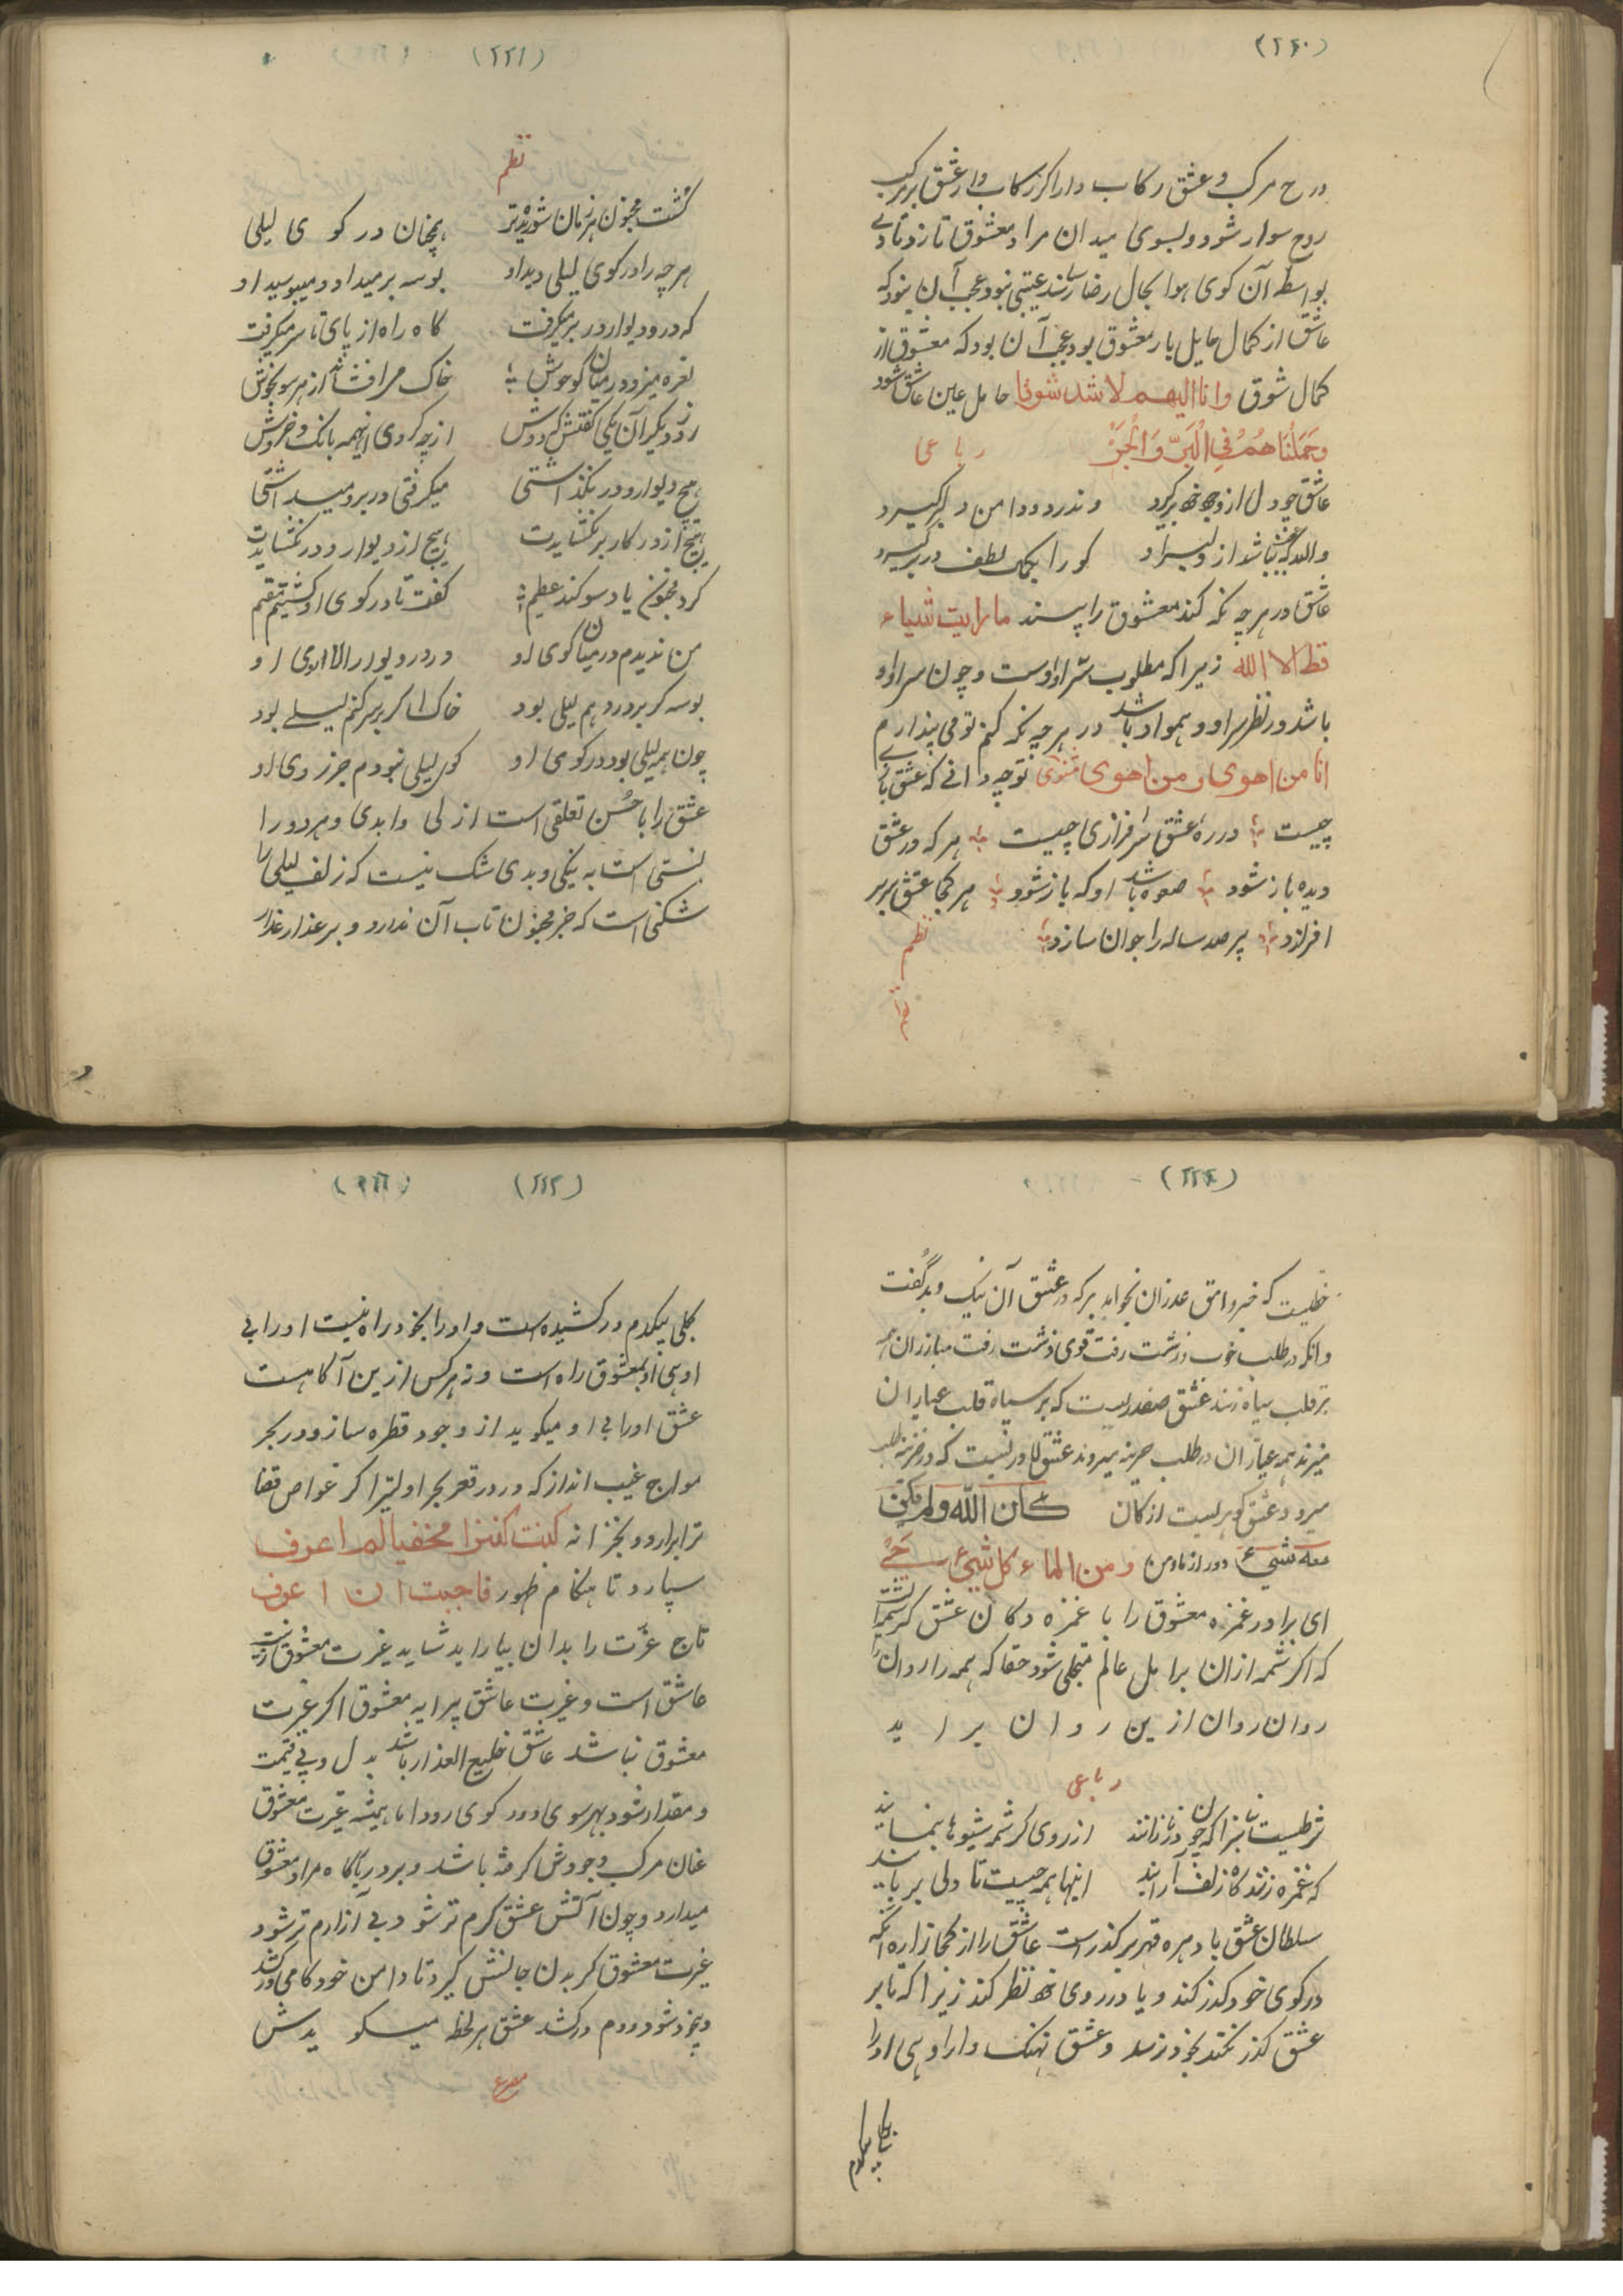 (۲۲۰)
روح مرکب و عشق رکاب دار اگر رکاب دار عشق بر مرکب
روح سوار شود و بسوی میدان مراد معشوق تازد تا وی
بواسطه آن کوی هوا بحال رضا رساند عیبی نبود عجب آن نبود که
عاشق از کمال حایل بار معشوق بود عجب آن بود که معشوق از
کمال شوق وانا الیهم لاشد شوقا حامل عین عاشق شود
وَحَمَلْنَاهُمْ فِی الْبَرِّ وَالْبَحْرِ رباعی
عاشق چو دل از وجود خود برگیرد وندر دو دامن دلبر گیرد
والله که عجب نباشد از دلبر او کو را بکمال لطف در بر گیرد
عاشق در هر چه نگه کند معشوق را بیند ما رایت شیاء
قط الا الله زیرا که مطلوب سر او اوست و چون سر او او
باشد در نظر سر او و همو او باشد در هر چه نگه کنم تویی پندارم
انا من اهوی و من اهوی انا مثنوی تو چه دانی که عشق بازی
چیست در ره عشق سرفرازی چیست هر که در عشق
دیده باز شود صعوه باشد او که باز شود هر کجا عشق پر بر
افرازد پیر صد ساله را جوان سازد
نظم
(۲۲۱)
نظم
گشت مجنون هر زمان شوریده‌تر همچنان در کوی لیلی
هر چه را در کوی لیلی دید او بوسه بر میداد و میبوسید او
که در و دیوار در بر میگرفت گاه راه از پای تا سر میگرفت
نعره میزد در میان کو خوش خاک مر افشاند از هر سو بخوش
روز دیگر آن یکی گفتش که دوش از چه کردی اینهمه بانگ و خروش
هیچ دیوار و در نگذاشتی میگرفتی در بر و میداشتی
هیچ از در کار بر نگشایدت هیچ از دیوار و در نگشایدت
کرد مجنون یاد سوگند عظیم گفت تا در کوی او گشتم مقیم
من ندیدم در میان کوی او در در و دیوار الا روی او
بوسه گر بر در دهم لیلی بود خاک اگر بر سر کنم لیلی بود
چون همه لیلی بود در کوی او کوی لیلی نبودم جز روی او
عشق را با حُسن تعلقی است ازلی و ابدی و هر دو را
نسبتی است به نیکی و بدی شک نیست که زلف لیلی را
شکنی است که جز مجنون تاب آن ندارد و بر عذار عذرا
(۲۲۲)
خطیست که جز وامق عذر آن نخواهد هر که در عشق آن نیک و بد گفت
وانکه در طلب خوب و زشت رفت قوی زشت رفت مبارزان
بر قلب سپاه زنند عشق صفدریست که بر سپاه قلب عیاران
میزند همه عیاران در طلب خزینه میروند عشق دلاوریست که در خزینه طلب
میرود عشق گوهریست از کان کان الله ولم یکن
معه شیء دور از ما و من ومن الماء کل شیء حی
ای برادر غمزه معشوق را با غمزه دکان عشق کرشمه‌ایست
که اگر شمه از آن بر اهل عالم متجلی شود حقا که همه را روان
روان روان ازین روان بر اید
رباعی
شرطیست بتانرا که چو در ناز آیند از روی کرشمه شیوها بنمایند
که غمزه زنند گاه زلف آرایند اینها همه چیست تا دلی بربایند
سلطان عشق با دهره قهر بر گذر است عاشق را از کجا زهره آنکه
در کوی خود گذر کند و یا در روی خود نظر کند زیرا که تا بر
عشق گذر نکند بخود نرسد و عشق نهنگ وار اوهی او را
بکلی بیکدم
(۲۲۳)
بکلی بیکدم در کشیده است و او را بخود راه نیست او را بی
اوهی او بمعشوق راه است و نه هر کس ازین آگاهست
عشق او را بی او میگوید از وجود قطره سازد و در بحر
مواج غیب انداز که در و در قعر بحر اولیترا گر غواص قضا
ترا بر آرد و بخزانه کنت کنزا مخفیا لم اعرف
سپارد تا هنگام ظهور فاحببت ان اعرف
تاج عزّت را بدان بیاراید شاید غیرت معشوق زینت
عاشق است و غیرت عاشق پیرایه معشوق اگر غیرت
معشوق نباشد عاشق خلیع العذار باشد بدل و بی قیمت
و مقدار شود بهر سوی دود و در کوی رود اما همیشه غیرت معشوق
عنان مرکب وجودش گرفته باشد و بر درگاه مراد معشوق
میدارد و چون آتش عشق گرم تر شود بی آرام تر شود
غیرت معشوق گریبان جانش گیرد تا دامن خود کامی در کشد
و بیخود شود و دم در کشد عشق هر لحظه میگویدش
مصرع